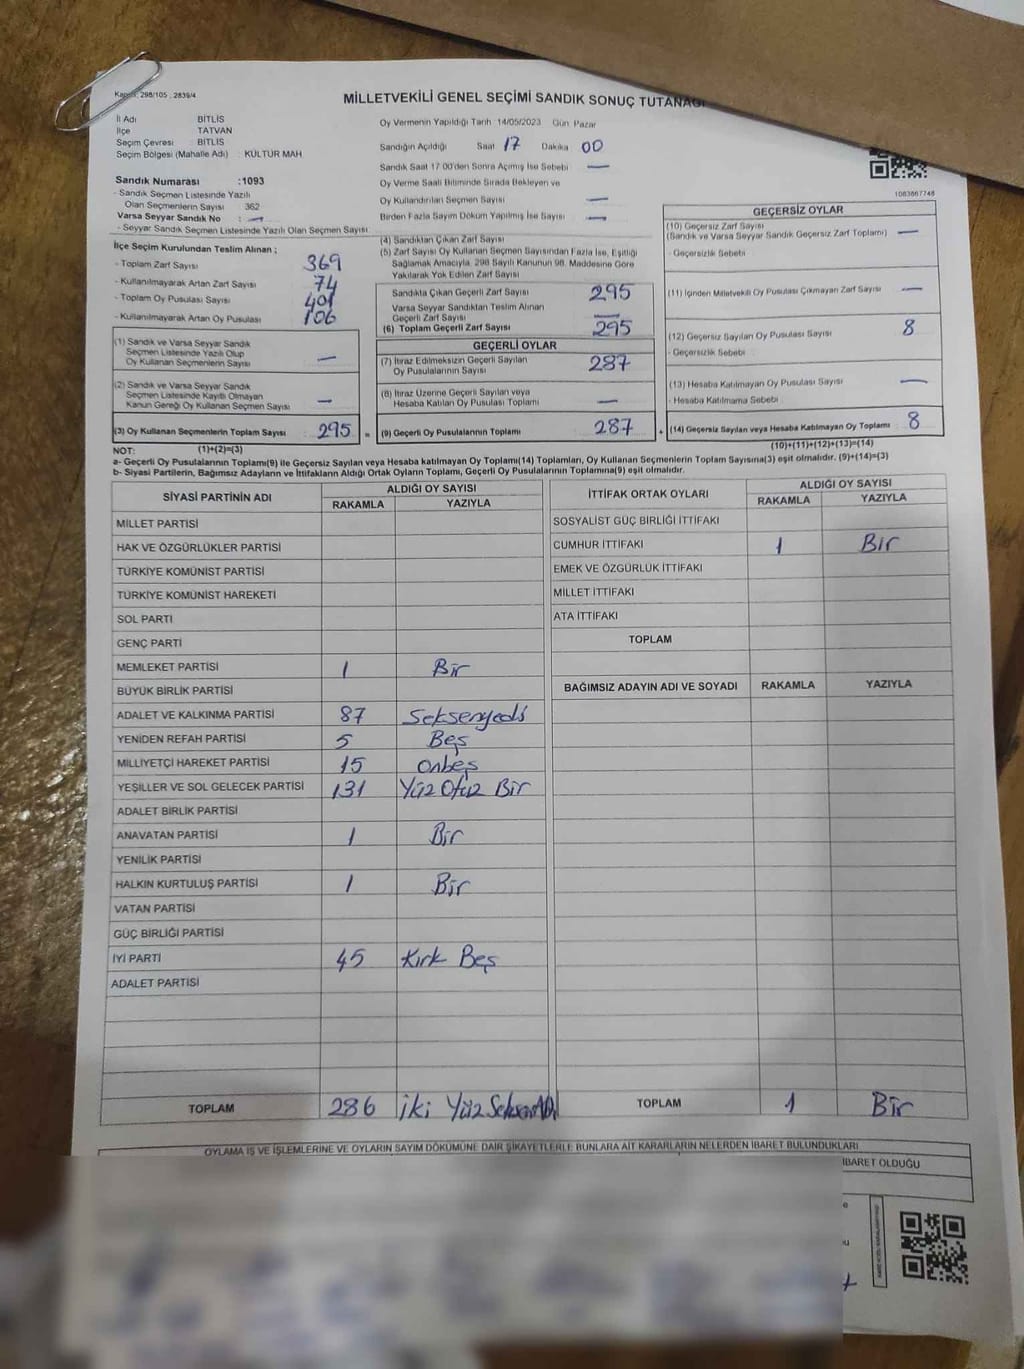 Kapsa: 298/105 , 2839/4
MİLLETVEKİLİ GENEL SEÇİMİ SANDIK SONUÇ TUTANAĞI
İl Adı BİTLİS
İlçe TATVAN
Seçim Çevresi BİTLİS
Seçim Bölgesi (Mahalle Adı) : KÜLTÜR MAH
Sandık Numarası :1093
- Sandık Seçmen Listesinde Yazılı
Olan Seçmenlerin Sayısı 362
Varsa Seyyar Sandık No : —
- Seyyar Sandık Seçmen Listesinde Yazılı Olan Seçmen Sayısı
Oy Vermenin Yapıldığı Tarih 14/05/2023 Gün Pazar
Sandığın Açıldığı Saat 17 Dakika 00
Sandık Saat 17.00'den Sonra Açılmış İse Sebebi —
Oy Verme Saati Bitiminde Sırada Bekleyen ve
Oy Kullandırılan Seçmen Sayısı —
Birden Fazla Sayım Döküm Yapılmış İse Sayısı —
1083667748
İlçe Seçim Kurulundan Teslim Alınan ;
- Toplam Zarf Sayısı 369
- Kullanılmayarak Artan Zarf Sayısı 74
- Toplam Oy Pusulası Sayısı 401
- Kullanılmayarak Artan Oy Pusulası 106
(1) Sandık ve Varsa Seyyar Sandık
Seçmen Listesinde Yazılı Olup
Oy Kullanan Seçmenlerin Sayısı —
(2) Sandık ve Varsa Seyyar Sandık
Seçmen Listesinde Kayıtlı Olmayan
Kanun Gereği Oy Kullanan Seçmen Sayısı —
(3) Oy Kullanan Seçmenlerin Toplam Sayısı 295 =
(1)+(2)=(3)
(4) Sandıktan Çıkan Zarf Sayısı
(5) Zarf Sayısı Oy Kullanan Seçmen Sayısından Fazla İse, Eşitliği
Sağlamak Amacıyla, 298 Sayılı Kanunun 98. Maddesine Göre
Yakılarak Yok Edilen Zarf Sayısı
Sandıkta Çıkan Geçerli Zarf Sayısı 295
Varsa Seyyar Sandıktan Teslim Alınan
Geçerli Zarf Sayısı —
(6) Toplam Geçerli Zarf Sayısı 295
GEÇERLİ OYLAR
(7) İtiraz Edilmeksizin Geçerli Sayılan
Oy Pusulalarının Sayısı 287
(8) İtiraz Üzerine Geçerli Sayılan veya
Hesaba Katılan Oy Pusulası Toplamı —
(9) Geçerli Oy Pusulalarının Toplamı 287 +
GEÇERSİZ OYLAR
(10) Geçersiz Zarf Sayısı
(Sandık ve Varsa Seyyar Sandık Geçersiz Zarf Toplamı) —
- Geçersizlik Sebebi
(11) İçinden Milletvekili Oy Pusulası Çıkmayan Zarf Sayısı —
(12) Geçersiz Sayılan Oy Pusulası Sayısı 8
- Geçersizlik Sebebi
(13) Hesaba Katılmayan Oy Pusulası Sayısı —
- Hesaba Katılmama Sebebi
(14) Geçersiz Sayılan veya Hesaba Katılmayan Oy Toplamı 8
(10)+(11)+(12)+(13)=(14)
NOT:
a- Geçerli Oy Pusulalarının Toplamı(9) ile Geçersiz Sayılan veya Hesaba katılmayan Oy Toplamı(14) Toplamları, Oy Kullanan Seçmenlerin Toplam Sayısına(3) eşit olmalıdır. (9)+(14)=(3)
b- Siyasi Partilerin, Bağımsız Adayların ve İttifakların Aldığı Ortak Oyların Toplamı, Geçerli Oy Pusulalarının Toplamına(9) eşit olmalıdır.
SİYASİ PARTİNİN ADI ALDIĞI OY SAYISI
RAKAMLA YAZIYLA
MİLLET PARTİSİ
HAK VE ÖZGÜRLÜKLER PARTİSİ
TÜRKİYE KOMÜNİST PARTİSİ
TÜRKİYE KOMÜNİST HAREKETİ
SOL PARTİ
GENÇ PARTİ
MEMLEKET PARTİSİ 1 Bir
BÜYÜK BİRLİK PARTİSİ
ADALET VE KALKINMA PARTİSİ 87 Seksenyedi
YENİDEN REFAH PARTİSİ 5 Beş
MİLLİYETÇİ HAREKET PARTİSİ 15 Onbeş
YEŞİLLER VE SOL GELECEK PARTİSİ 131 Yüz Otuz Bir
ADALET BİRLİK PARTİSİ
ANAVATAN PARTİSİ 1 Bir
YENİLİK PARTİSİ
HALKIN KURTULUŞ PARTİSİ 1 Bir
VATAN PARTİSİ
GÜÇ BİRLİĞİ PARTİSİ
İYİ PARTİ 45 Kırk Beş
ADALET PARTİSİ
TOPLAM 286 iki Yüz Seksen Altı
İTTİFAK ORTAK OYLARI ALDIĞI OY SAYISI
RAKAMLA YAZIYLA
SOSYALİST GÜÇ BİRLİĞİ İTTİFAKI
CUMHUR İTTİFAKI 1 Bir
EMEK VE ÖZGÜRLÜK İTTİFAKI
MİLLET İTTİFAKI
ATA İTTİFAKI
TOPLAM
BAĞIMSIZ ADAYIN ADI VE SOYADI RAKAMLA YAZIYLA
TOPLAM 1 Bir
OYLAMA İŞ VE İŞLEMLERİNE VE OYLARIN SAYIM DÖKÜMÜNE DAİR ŞİKAYETLERLE BUNLARA AİT KARARLARIN NELERDEN İBARET BULUNDUKLARI
İBARET OLDUĞU